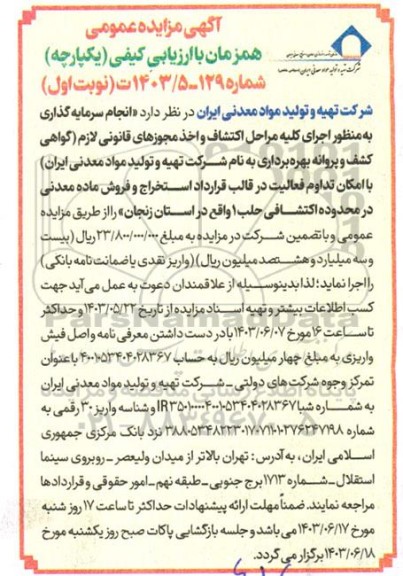 آگهی مزایده عمومی
همزمان با ارزیابی کیفی (یکپارچه)
شماره ۱۲۹-۱۴۰۳/۵ت (نوبت اول)
شرکت تهیه و تولید مواد معدنی ایران در نظر دارد «انجام سرمایه گذاری
به منظور اجرای کلیه مراحل اکتشاف و اخذ مجوزهای قانونی لازم (گواهی
کشف و پروانه بهره برداری به نام شرکت تهیه و تولید مواد معدنی ایران)
با امکان تداوم فعالیت در قالب قرارداد استخراج و فروش ماده معدنی
در محدوده اکتشافی حلب ۱ واقع در استان زنجان» را از طریق مزایده
عمومی و با تضمین شرکت در مزایده به مبلغ ۲۳/۸۰۰/۰۰۰/۰۰۰ ریال (بیست
و سه میلیارد و هشتصد میلیون ریال) (واریز نقدی یا ضمانت نامه بانکی)
را اجرا نماید؛ لذا بدینوسیله از علاقمندان دعوت به عمل می آید جهت
کسب اطلاعات بیشتر و تهیه اسناد مزایده از تاریخ ۱۴۰۳/۰۵/۲۲ و حداکثر
تا ساعت ۱۶ مورخ ۱۴۰۳/۰۶/۰۷ با در دست داشتن معرفی نامه و اصل فیش
واریزی به مبلغ چهار میلیون ریال به حساب ۴۰۰۱۰۵۳۴۰۴۰۲۸۳۶۷ با عنوان
تمرکز وجوه شرکت های دولتی _ شرکت تهیه و تولید مواد معدنی ایران
به شماره شبا و شناسه واریز ۳۰ رقمی به
شماره نزد بانک مرکزی جمهوری
اسلامی ایران ، به آدرس: تهران بالاتر از میدان ولیعصر _ روبروی سینما
استقلال _ شماره ۱۷۱۳ برج جنوبی _ طبقه نهم _ امور حقوقی و قراردادها
مراجعه نمایند. ضمناً مهلت ارائه پیشنهادات حداکثر تا ساعت ۱۷ روز شنبه
مورخ ۱۴۰۳/۰۶/۱۷ می باشد و جلسه بازگشایی پاکات صبح روز یکشنبه مورخ
۱۴۰۳/۰۶/۱۸ برگزار می گردد.